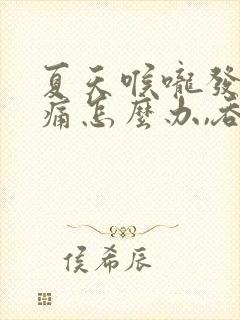 夏天喉嚨發
痛怎麼办,吞
侯希辰